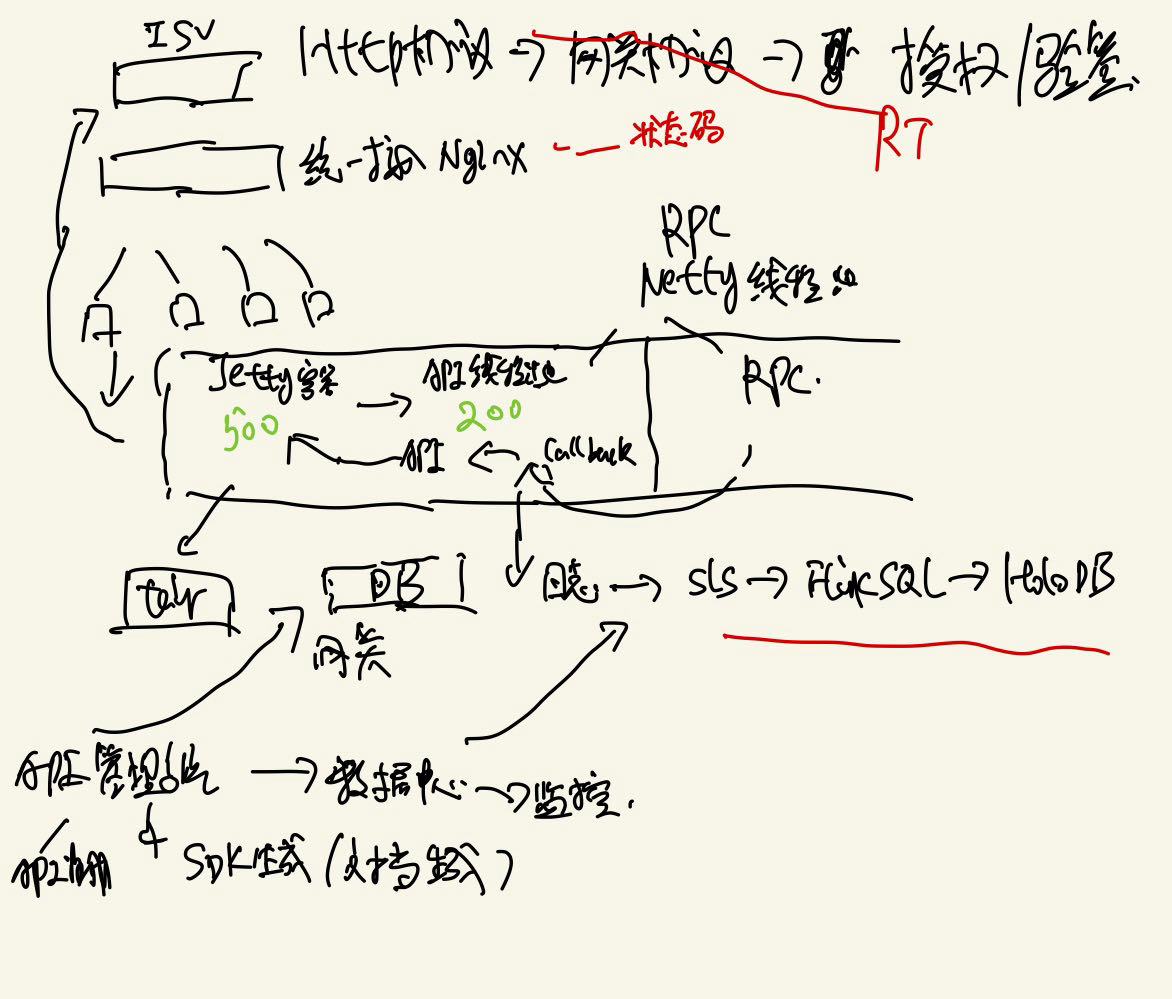 ISV
Http协议 → 网关协议 → 授权/验签
RT
统一接入 Nginx
状态码
RPC
Netty线程池
Jetty → API线程池
500
200
RPC.
API ← Callback
tair
DB
网关
日志 → SLS → FlinkSQL → HoloDB
API管理 → 数据中心 → 监控.
SDK生成 (文档生成)